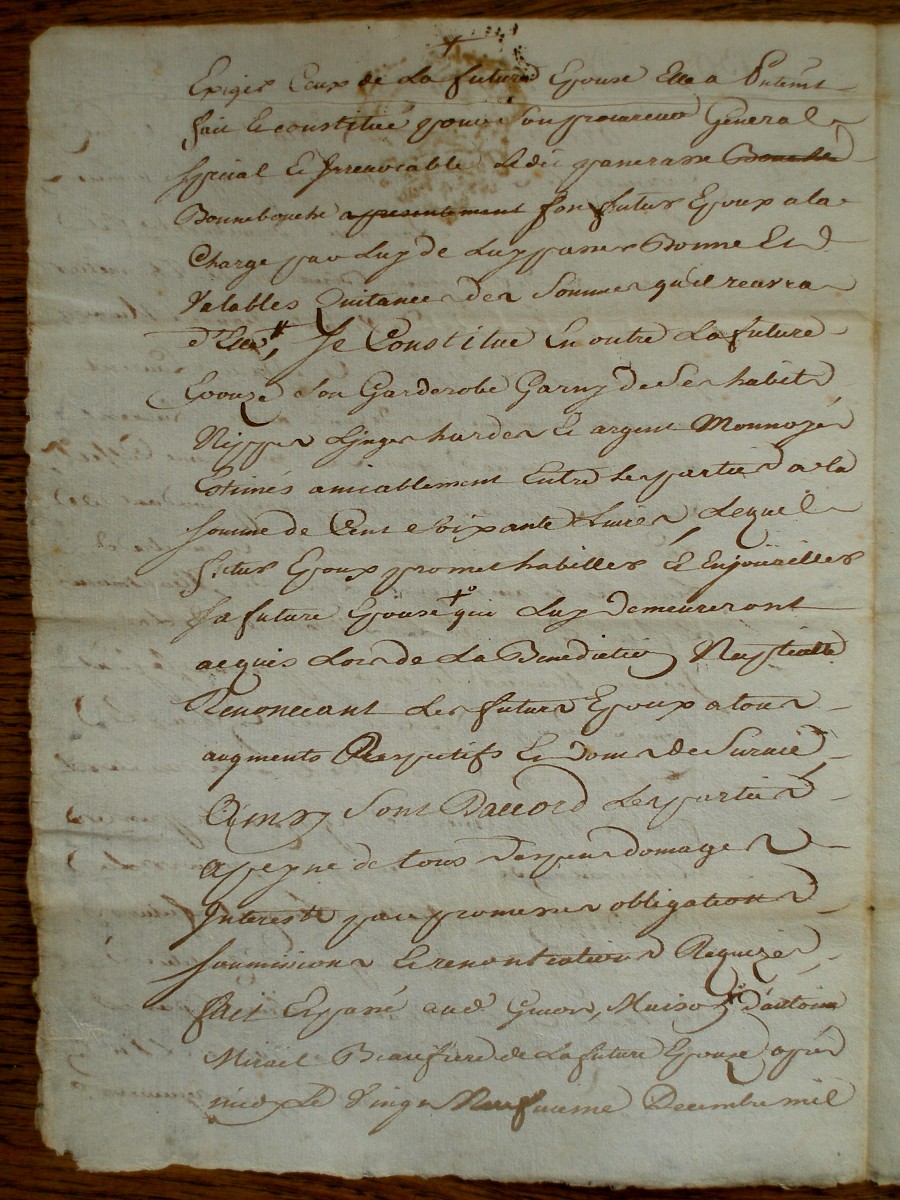 Exiger Ceux de La future Epouse Elle a
fait et constitué pour son procureur General
special et Irrevocable Ledit pancrasse Bouche
Bonnebouche apresentement son futur Epoux a la
Charge par Luy de Luy passer Bonne Et
Valables Quitances des Sommes qu'il recevra
d'Elle, Se Constitue En outre La future
Epouze son Garderobe Garny de Ses habits
Nippes Linges hardes et argent Monnoyé
Estimés amiablement Entre les parties a la
somme de Cent soixante Livres Lequel
futur Epoux promet habiller et Enjouéller
sa future Epouse + que Luy demeureront
acquis Lors de La Benediction Nuptialle
Renoncant Les futurs Epoux a tous
augments Respectifs Et Dons de Survie
Ainsy Sont D'accord Les parties
a peyne de tous Despens domages
Interests par promesses obligations
soumissions et renontiations Requizes
fait Et passé aud Maison d'antoine
Beaufrere de La future Epouze apres
midy Le Vingt Neufvieme Decembre mil